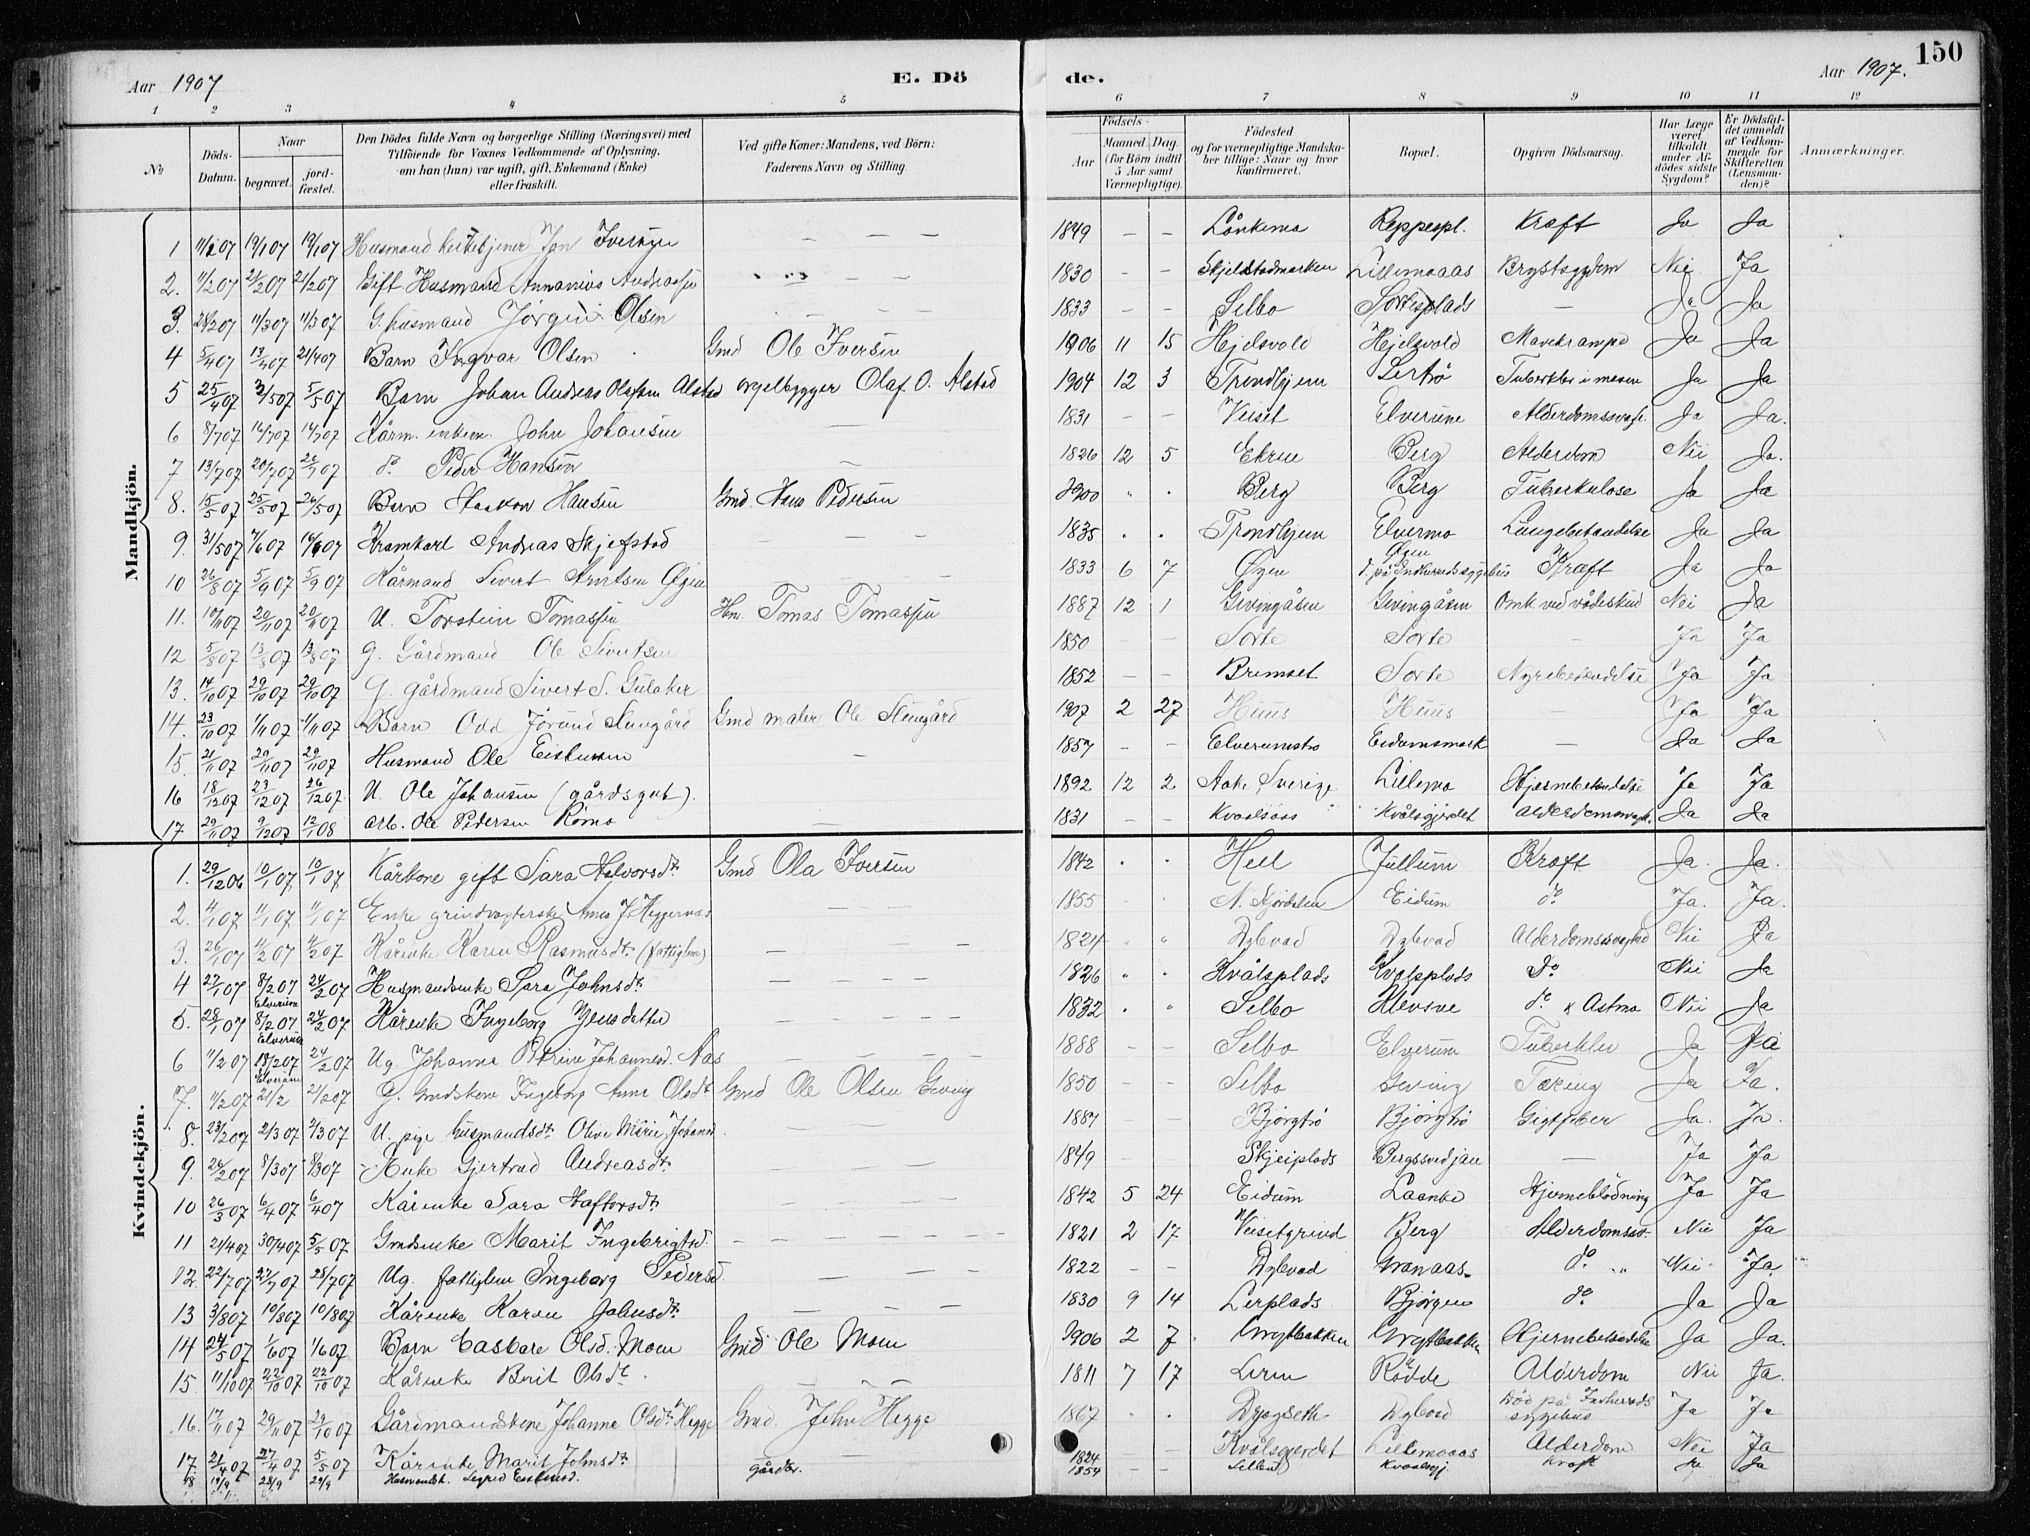 Aar 1907 E. Dö de. Aar 1907. 150
1 2 3 4 5 6 7 8 9 10 11 12
No
Döds-Datum.
Naar
begravet.
jord-fæstet.
Den Dödes fulde Navn og borgerlige Stilling (Næringsvei) med
Tilföiende for Voxnes Vedkommende af Oplysning,
om han (hun) var ugift, gift, Enkemand (Enke)
eller fraskilt.
Ved gifte Koner: Mandens, ved Börn:
Faderens Navn og Stilling.
Födsels-
Aar
Maaned. Dag.
(for Börn indtil
5 Aar samt
Værnepligtige).
Födested
og for værnepligtige Mandska-
ber tillige: Naar og hvor
konfirmeret.
Bopæl.
Opgiven Dödsaarsag.
Har Læge
været
tilkaldt
under Af-
dödes sidste
Sygdom?
Er Dödsfal-
det anmeldt
af Vedkom-
mende for
Skifteretten
(Lensman-
den)?
Anmærkninger.
Mandkjön.
1 19/1 07 19/1 07 Husmand Jon Iversen — — — 1849 — — Lånkemo Reppespl. Kræft Ja Ja
2. 11/2 07 21/2 07 21/2 07 Gift Husmand Annanius Andreassen 1830 - - Skjelstadmarken Lillemoaas Brystsygdom Nei Ja
3. 11/3 07 11/3 07 G. husmand Jørgen Olsen 1833 — — Selbo Sorteplads — Ja Ja
4 5/4 07 13/4 07 21/4 07 Barn Ingvar Olsen Gmd Ole Iversen 1906 11 15 Hjelsvold Hjelsvold Mavekrampe Ja Ja
5 25/4 07 3/5 07 5/5 07 Barn Johan Andreas Olafsen Alstad orgelbygger Olaf O. Alstad 1904 12 3 Trondhjem Ja Ja
6 8/7 07 14/7 07 14/7 07 Kårm. enkem. John Johansen — 1831 - - Veiset Elverum Alderdomssvagh. Ja Ja.
7 13/7 07 20/7 07 do Peder Hansen — 1826 12 5 Ekren Berg Alderdom Nei Ja.
8. 15/5 07 25/5 07 26/5 07 Barn Haakon Hansen Gmd. Hans Pedersen 1900 Berg Berg Tuberkulose Ja Ja
9. 31/5 07 7/6 07 Kramkarl Andreas Skjefstad 1835 Trondhjem Elvermo Lungebetændelse Ja Ja
10 26/8 07 5/9 07 5/9 07 Kårmand Sivert Arntsen Øgen 1833 6 7 Øgen Øgen d. på Indherreds sygehus Kræft Ja Ja
11. 10/11 07 20/11 07 20/11 07 U. Torstein Tomassen Hm. Tomas Tomassen 1887 12 1 Gevingåsen Gevingåsen Omk. ved vådeskud Nei Ja
12 5/8 07 13/8 07 13/8 07 G. Gårdmand Ole Sivertsen 1850 - - Sorte Sorte — Ja Ja
13. 14/10 07 29/10 07 29/10 07 G. gårdmand Sivert S. Gulaker 1852 - - Bremset Sorte Nyrebetændelse Ja Ja
14. 23/10 07 1/11 07 1/11 07 Barn Odd Jørund Gmd maler Ole 1907 2 27 Huus Huus Ja Ja
15. 21/11 07 29/11 07 29/11 07 Husmand Ole — 1857 - - Elverumstrø Eidumsmark — Ja Ja
16 18/12 07 23/12 07 26/12 07 U. Ole Johansen (gårdsgut). 1892 12 2 Sverige Lillemo Hjernebetændelse Ja Ja
17 29/11 07 9/12 07 12/1 08 arb. Ole Pedersen Rømo — 1831 - - Kvålsgjerdet Alderdomssvagh. Ja Ja
Kvindekjön.
1. 29/12 06 10/1 07 10/1 07 Kårkone gift Sara Halvorsdt. Gmd Ola Iversen 1842 Hell Jullum Kræft Ja. Ja.
2. 4/1 07 11/1 07 11/1 07 Enke grindvogterske 1855 N. Stjørdalen Eidum do Ja. Ja.
3. 26/1 07 4/2 07 4/2 07 Kårenke Karen Rasmusdt. (fattiglem) — — 1824 Dybvad Dybvad Alderdomssvaghed Nei Ja
4 27/1 07 8/2 07 24/2 07 Husmandsenke Sara Johnsdt. 1826 Kvålsplads Kvalsplads Do Nei Ja
Elverum
5. 28/1 07 8/2 07 24/2 07 Kårenke Ingeborg Jensdatter 1832 Selbo do & Astma Nei Ja
Elverum
6 11/2 07 18/2 07 24/2 07 Ug. Johanna Petrine Johannesd. Nas 1888 Selbo Elverum Tuberkler Ja Ja
Elverum
7. 11/2 07 21/2 G. Gmdskone Ingeborg Anna Olsdt Gmd Ole Olsen Geving 1850 - - Selbo Geving Tæring Ja Ja.
8. 23/2 07 2/3 07 2/3 07 U. pige husmandsdt. Oline Marie Johann. 1887 Bjørgtrø Bjørgtrø Gigtfeber Ja. Ja.
9. 26/2 07 8/3 07 8/3 07 Enke Gjertrud Andreasdt. 1849 Skjeiplads — Ja Ja
10 26/3 07 6/4 07 6/4 07 Kårenke Sara Haftorsdt. 1842 5 24 Eidum Laanke Hjerneblødning Ja Ja
11 21/4 07 30/4 07 5/5 07 Gmdsenke Marit Ingebrigtsd. 1821 2 17 Veisetgrind Berg Alderdomssv. Nei Ja
12 22/7 07 27/7 07 28/7 07 Ug. fattiglem Ingeborg Pedersd. 1822 - - Dybvad Granaas do Nei Ja
13 3/8 07 10/8 07 10/8 07 Kårenke Karen Johnsdt. 1830 9 14 Lerplads Bjørgen do Ja Ja
14 24/5 07 1/6 07 1/6 07 Barn Olsd. Moen Gmd Ole Moen 1906 2 7 Hjernebetændelse Ja Ja.
15 11/10 07 22/10 07 22/10 07 Kårenke Berit Olsdt. 1811 7 17 Leren Rødde Alderdom Nei Ja.
16. 17/11 07 29/11 07 29/10 07 Gårdmandskone Johanna Olsdt. Hegge Gmd. John Hegge 1867 Dybvad Död på Indherreds sygehus Ja Ja
17 21/4 07 27/4 07 5/5 07 Kårenke Marit Johnsdt. — 1824 - - Kvålsgjerdet Lillemoaas Alderdom Nei Ja
18 19/9 28/9 29/9 Sigrid gårdbr. 1854 Kvaalsgj. Kræft Ja Ja